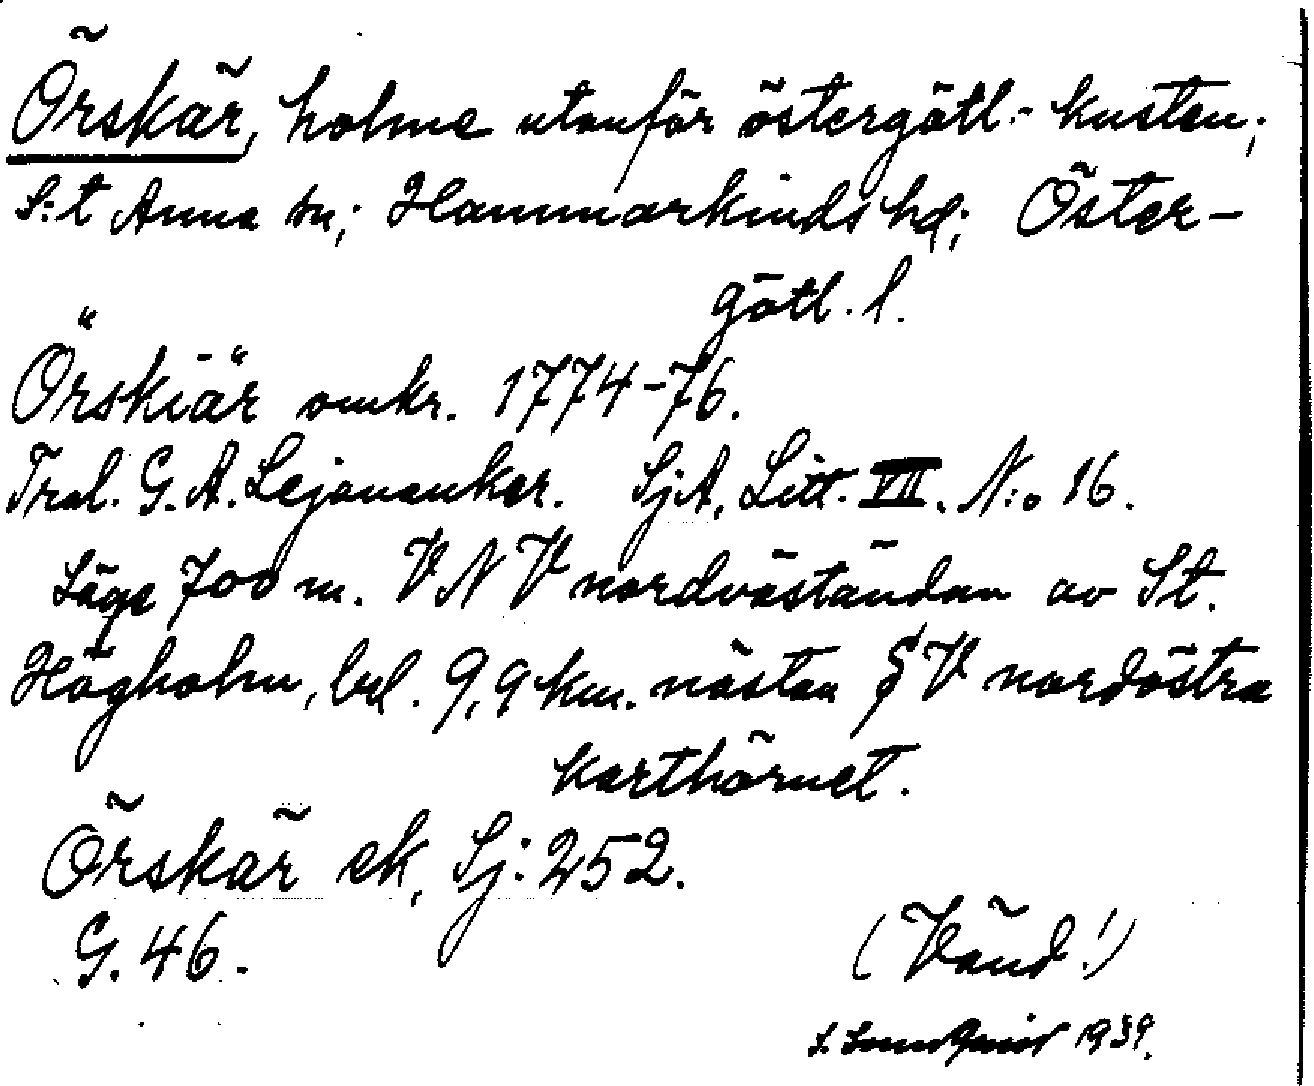 Örskär, holme utanför östergötl.- kusten;
S:t Anna sn; Hammarkinds hd; Öster-
götl. l.
Örskiär omkr. 1774-76.
Tral. G. A. Lejonanker. SjA, Litt. VII. N:o 16.
Läge 700 m. VNV nordväständan av St.
Högholm, bel. 9,9 km. nästan SV nordöstra
karthörnet.
Örskär ek, Sj: 252.
G. 46.
(Vänd!)
1939.